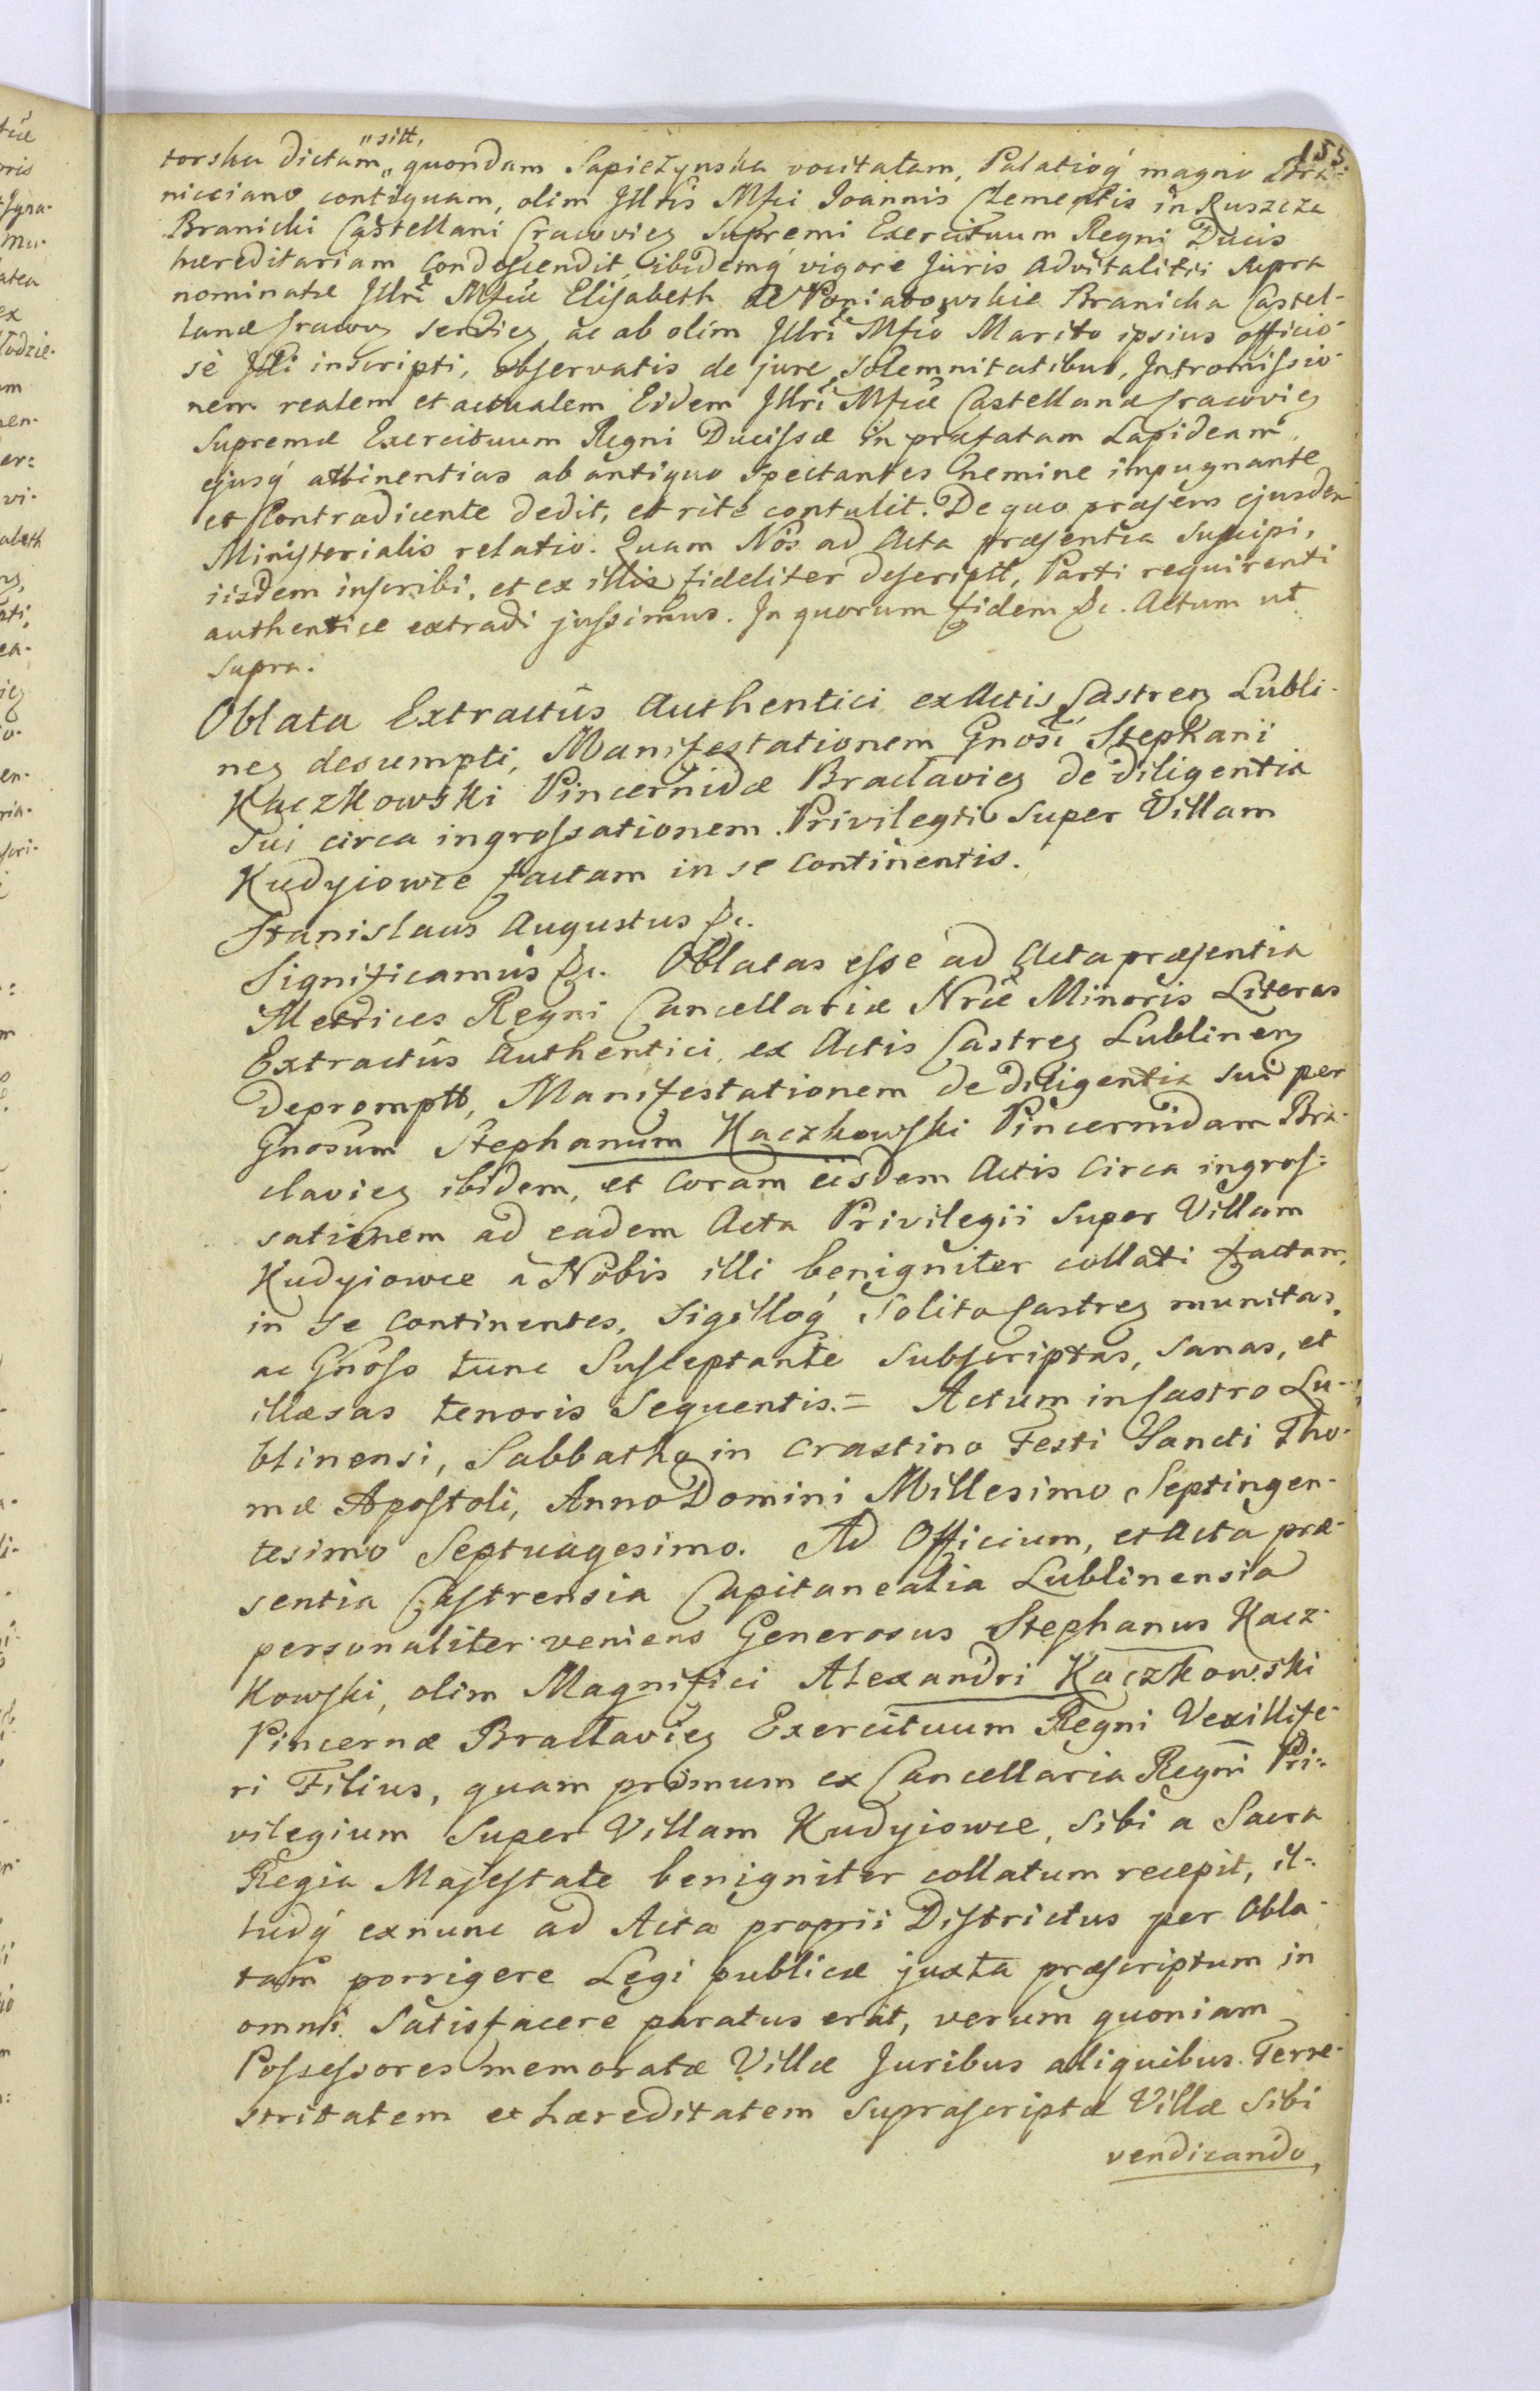 155
"sitt,
torska dictam „ quondam Sapiezynska vocitatam, Palatioq́ magno Bra-
nicciano contiguam, olim Jllris Mfci Joannis Clementis in Ruszcza
Branicki Castellani Cracovieȝ Supremi Exercituum Regni Ducis
hæreditariam condescendit, ibidemq́ vigore Juris Advitalitii supra
nominatæ Jllri Mfcæ Elisabeth de Poniatowskie Branicka Castel-
lanæ Cracovȝ servieȝ ac ab olim Jllri Mfco Marito ipsius officio-
sè Jlli inscripti, observatis de jure solemnitatibus, Intromissio-
nem realem et actualem Eidem Jllri Mfcæ Castellanæ Cracovieȝ
Supremæ Exercituum Regni Ducissæ in præfatam Lapideam
ejusq́ attinentias ab antiquo spectantes nemine impugnante
et Contradicente dedit, et rite contulit. De quo præsens ejusdem
Ministerialis relatio. Quam Nos ad Acta præsentia suscipi,
iisdem inscribi, et ex illis fideliter descriptt, Parti requirenti
authentice extradi jussimus. In quorum fidem &c. Actum ut
supra.
Oblata Extractûs Authentici ex Actis Castreȝ Lubli-
neȝ desumpti, Manifestationem Gnosi Stephani
Kaczkowski Pincernidæ Braclavieȝ de diligentia
sui circa ingrossationem Privilegii super Villam
Kudyiowce factam in se continentis.
Stanislaus Augustus &c.
Significamus &c. Oblatas esse ad Acta præsentia
Metrices Regni Cancellariæ Nræ Minoris Literas
Extractûs Authentici ex Actis Castreȝ Lublineȝ
depromptt, Manifestationem de diligentia sui per
Gnosum Stephanum Kaczkowski Pincernidam Bra-
clavieȝ ibidem, et Coram eisdem Actis circa ingros-
sationem ad eadem Acta Privilegii super Villam
Kudyiowce à Nobis illi benigniter collati factam,
in se continentes, Sigilloq́ solito Castreȝ munitas,
ac Gnoso tunc Susceptante subscriptas, sanas, et
illæsas tenoris sequentis.= Actum in Castro Lu-
blinensi, Sabbatho in crastino Festi Sancti Tho-
mæ Apostoli, Anno Domini Millesimo Septingen-
tesimo Septuagesimo. Ad Officium, et Acta præ-
sentia Castrensia Capitanealia Lublinensia
personaliter veniens Generosus Stephanus Kacz-
kowski, olim Magnifici Alexandri Kaczkowski
Pincernæ Braclavieȝ Exercituum Regni Vexillife-
ri Filius, quam primum ex Cancellaria Regni Pri-
vilegium super Villam Kudyiowce, sibi a Sacra
Regia Majestate benigniter collatum recepit, il-
ludq́ exnunc ad Acta proprii Districtus per Obla-
tam porrigere Legi publicæ juxta præscriptum in
omni satisfacere paratus erat, verum quoniam
Possessores memoratæ Villæ Juribus aliquibus Terre-
stritatem et hæreditatem suprascriptæ Villæ sibi
vendicando,